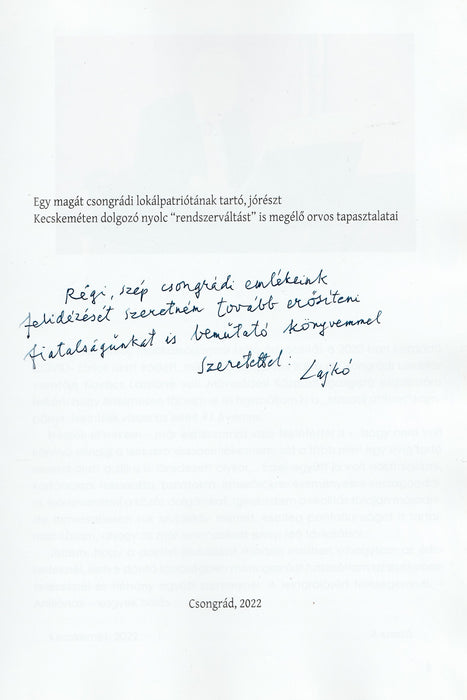 Egy magát csongrádi lokálpatriótának tartó, jórészt
Kecskeméten dolgozó nyolc "rendszerváltást" is megélő orvos tapasztalatai
Régi, szép csongrádi emlékeink
felidézését szeretném tovább erősíteni
fiatalságunkat is bemutató könyvemmel
Szeretettel: Lajkó
Csongrád, 2022